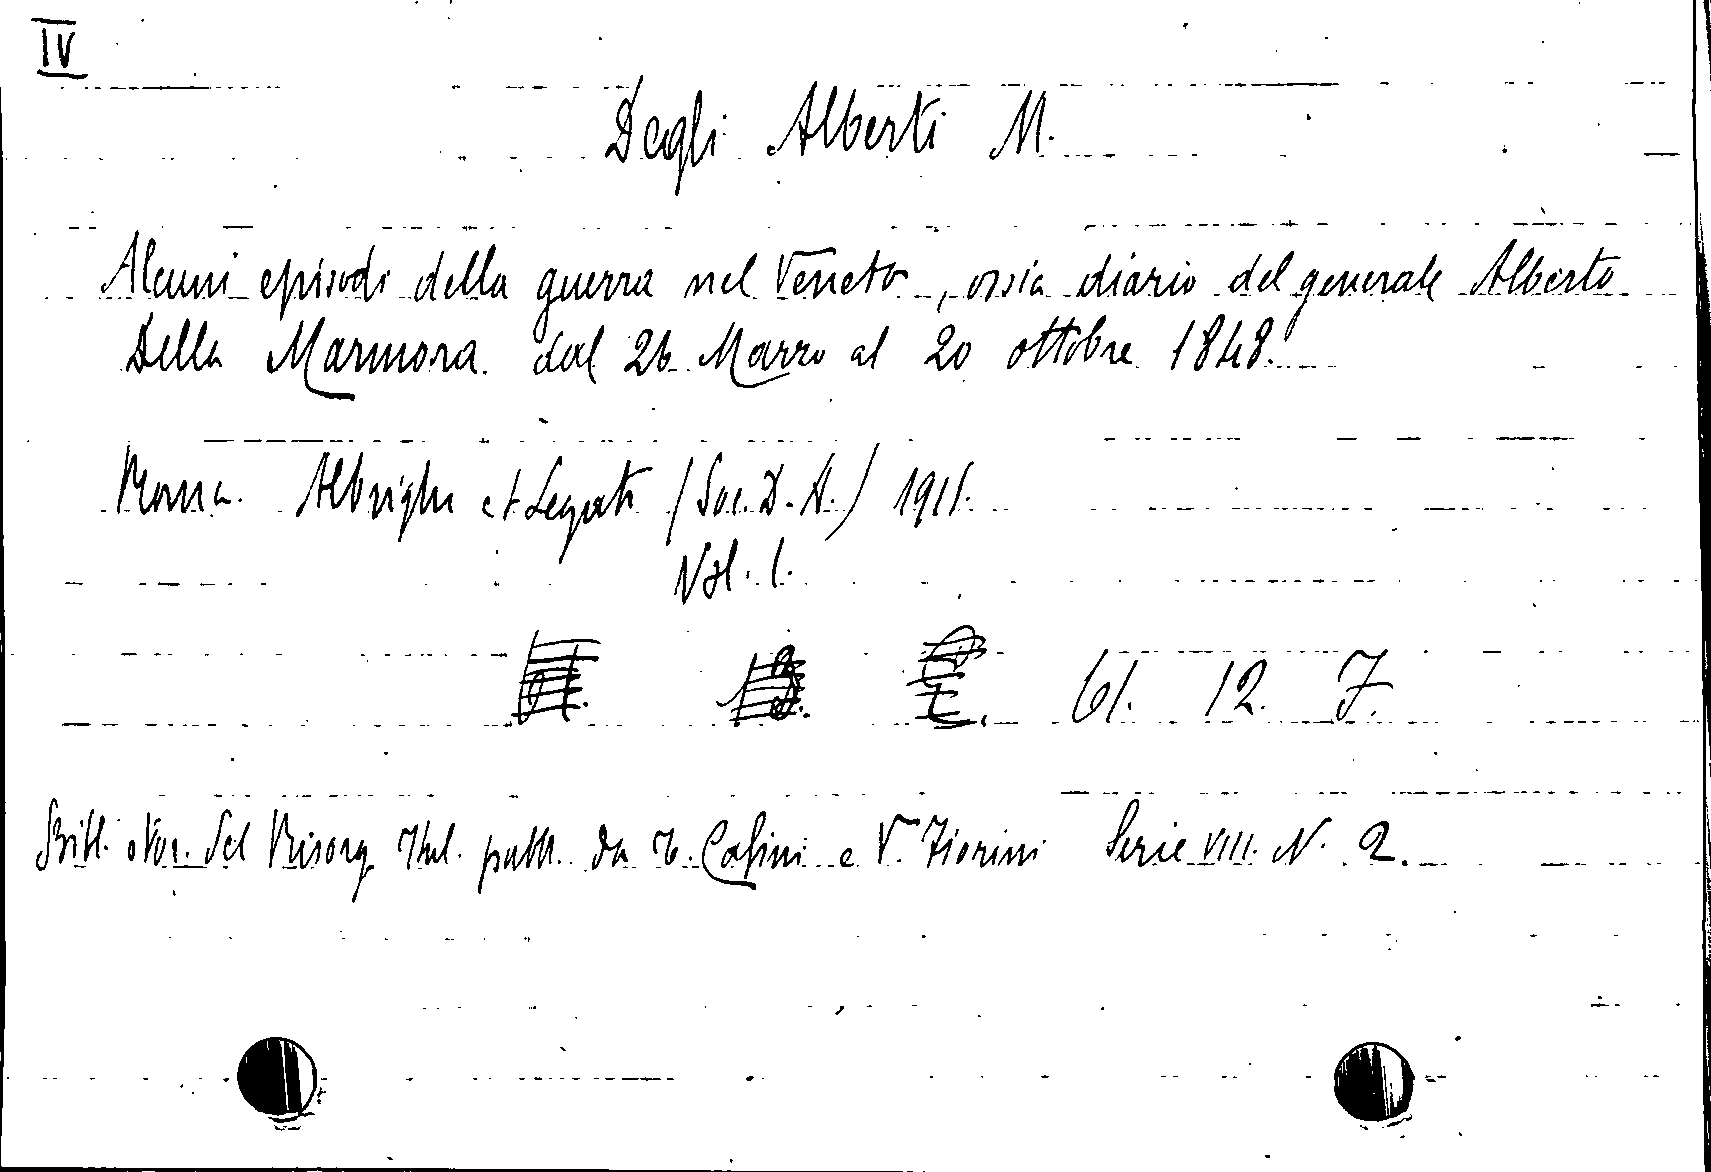 IV
Degli Alberti M.
Alcuni episodi della guerra nel Veneto, ossia diario del generale Alberto
Della Marmora dal 26 Marzo al 20 ottobre 1848.
Roma. Albrighi et Segati (Soc. D. A.) 1911.
Vol. 1.
61. 12. 7.
Bibl. Stor. del Risorg. Ital. pubb. da T. Casini e V. Fiorini Serie VIII. N. 2.